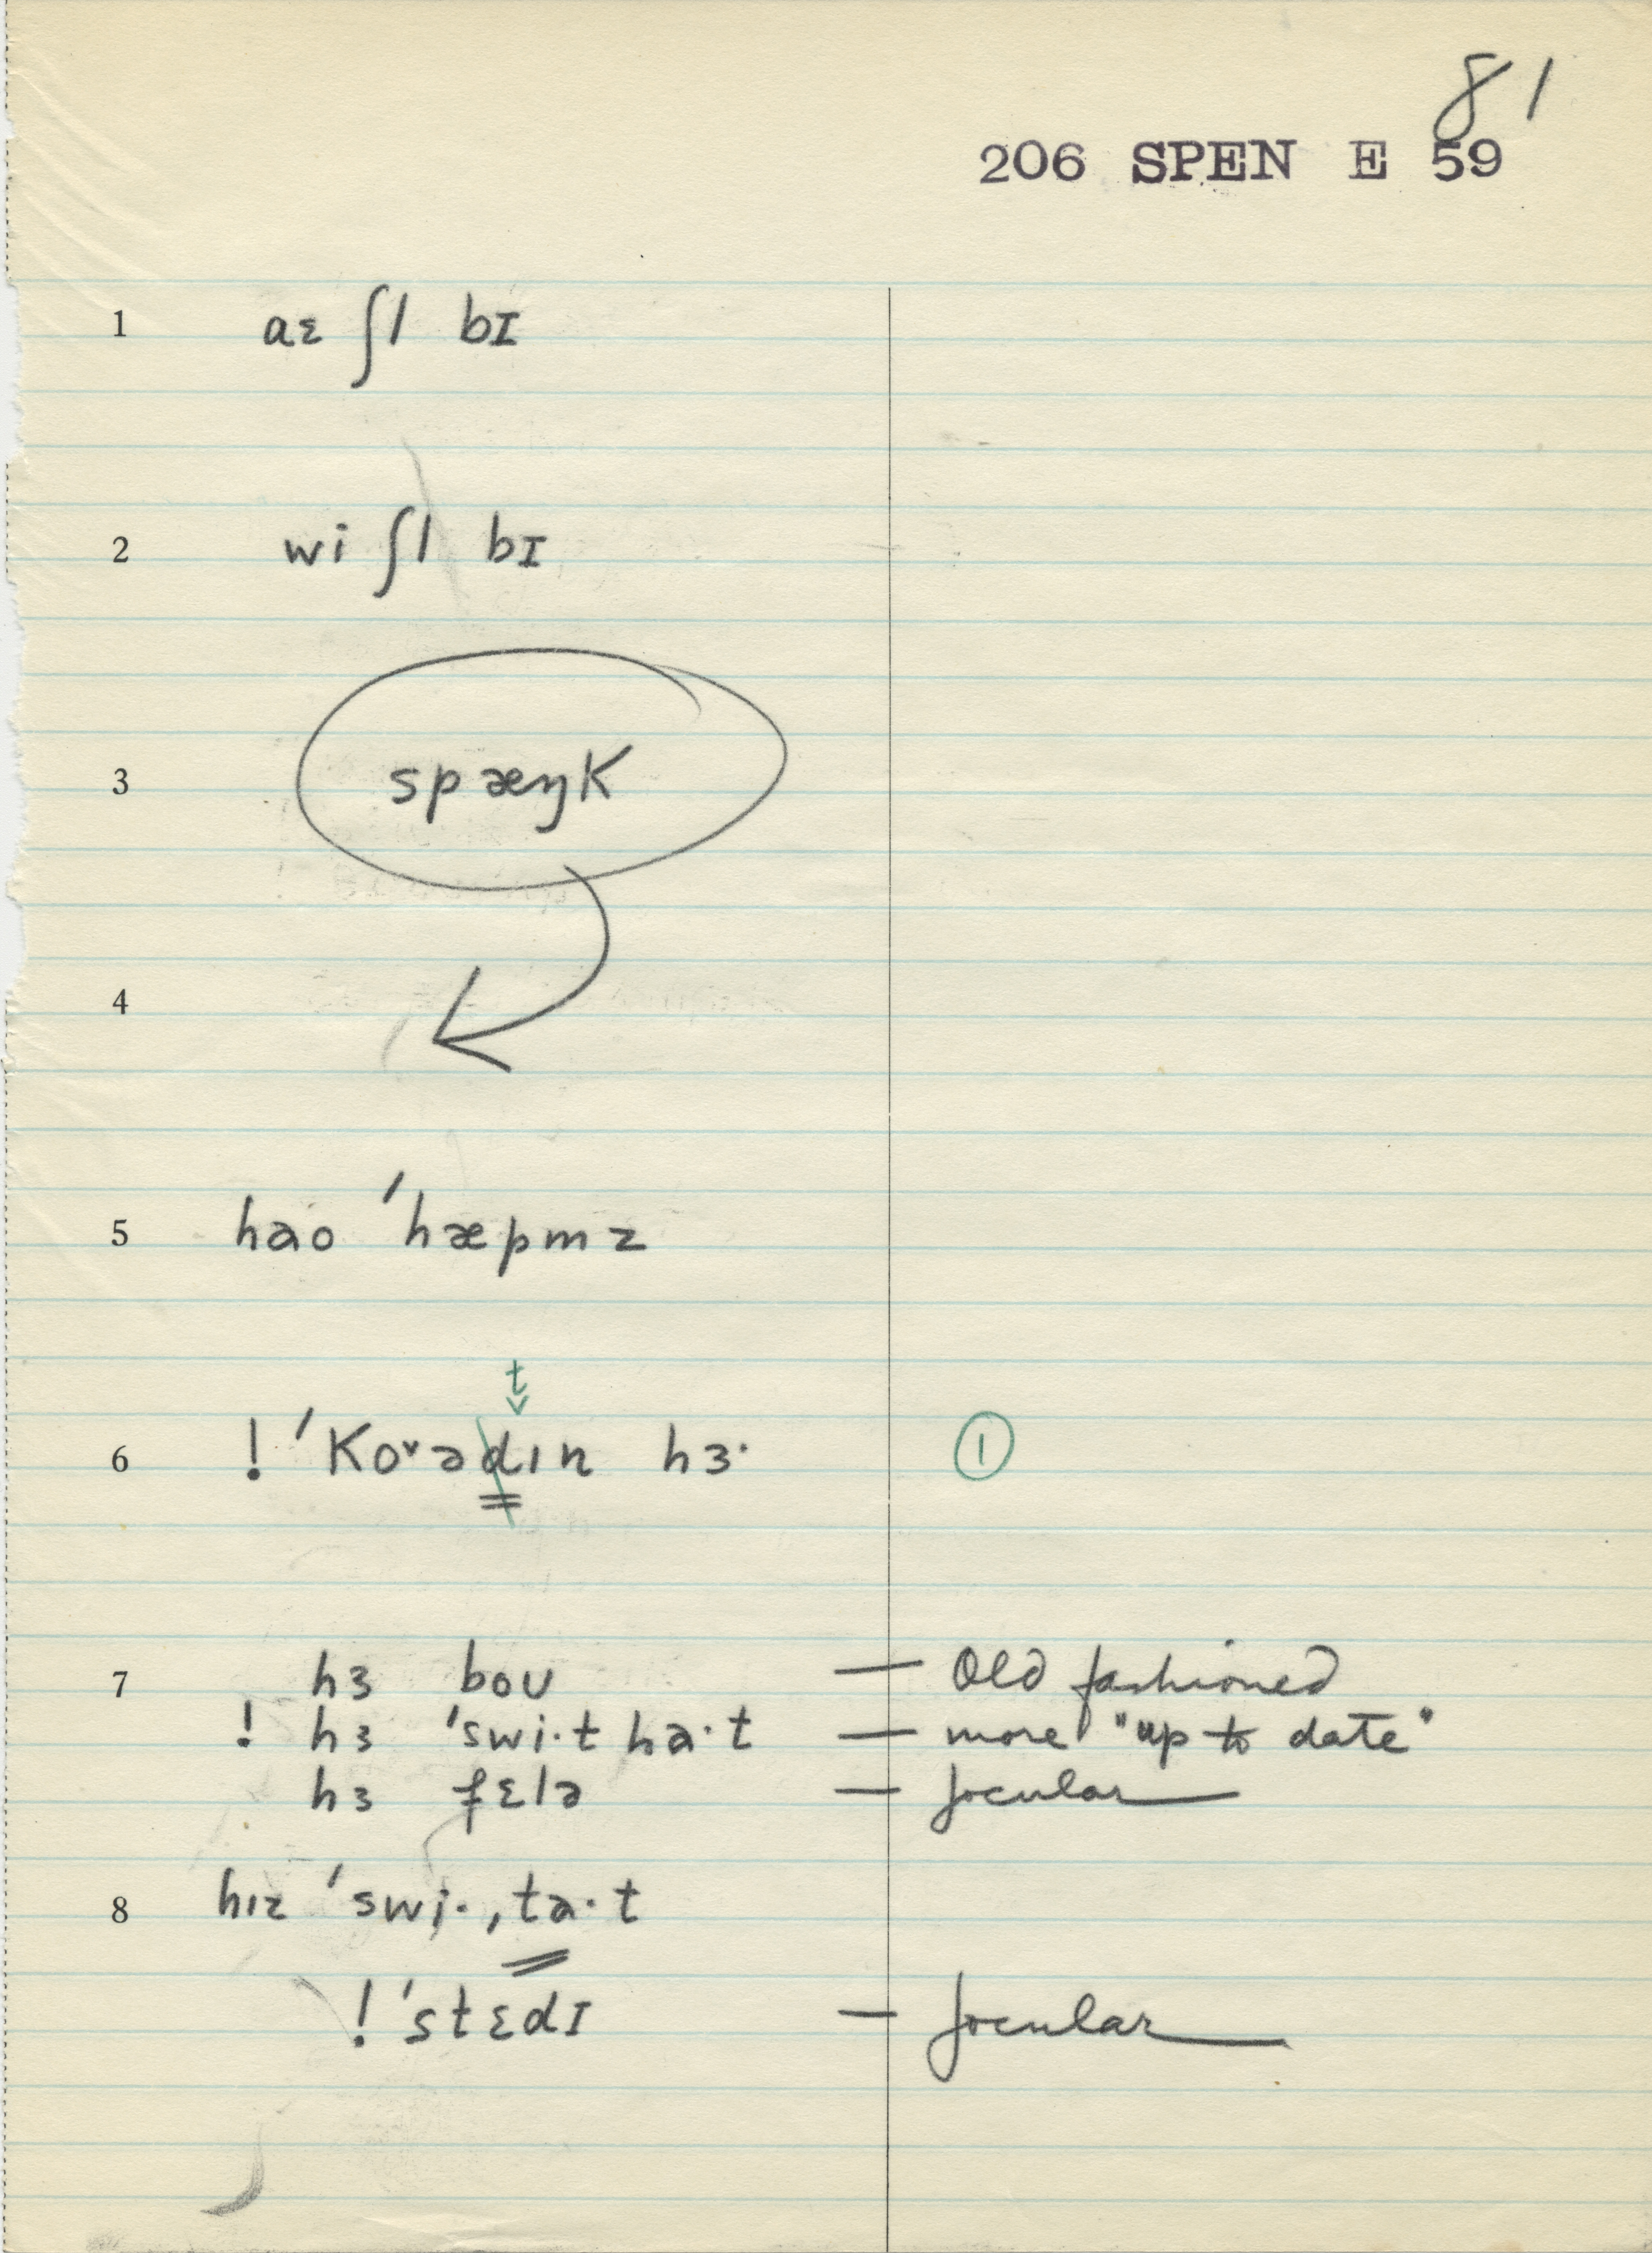 81
206 SPEN E 59
1 aɛ ʃl bɪ
2 wi ʃl bɪ
3 spæŋk
4
5 hao ˈhæpmz
t
6 ! ˈkoˇədın hɜ·
1
7 hɜ boʊ — Old fashioned
! hɜ ˈswi·t ha·t — more "up to date"
hɜ fɛlə — Jocular
8 hız ˈswi̞·ˌta·t
! ˈstɛdɪ — Jocular